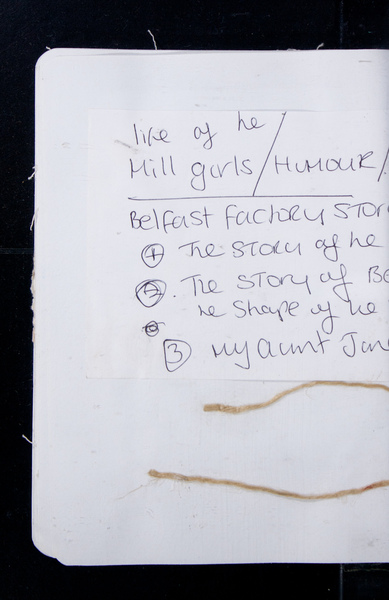 life of he
Mill girls / HUMOUR /
Belfast Factory STOR
1 The STORY of he
2. The STORY of Be
he Shape of he
3 My aunt Jan